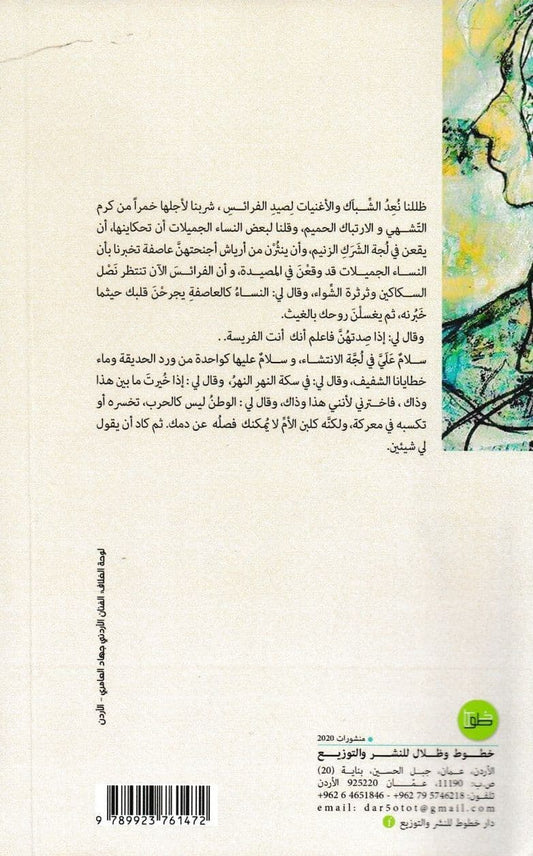 ظللنا نُعِدُ الشِّباك والأغنيات لِصيدِ الفرائسِ، شربنا لأجلها خمراً من كرم
التّشهي و الارتباك الحميم، وقلنا لبعض النساء الجميلات أن تحكاينها، أن
يقعن في لُجة الشَرَكِ الزنيم، وأن ينثُرْن من أرياش أجنحتهنَّ عاصفة تخبرنا بأن
النساء الجميلات قد وقعْنَ في المصيدة، و أن الفرائسَ الآن تنتظر نَصْل
السكاكين وثرثرة الشِّواء، وقال لي: النساءُ كالعاصفةِ يجرحْنَ قلبك حيثما
خَبُرنه، ثم يغسلْنَ روحك بالغيث.
وقال لي: إذا صِدتهُنَّ فاعلم أنك أنت الفريسة. .
سلامٌ عَلَيَّ في لُجَّة الانتشاء، و سلامٌ عليها كواحدة من ورد الحديقة وماء
خطايانا الشفيف، وقال لي: في سكة النهرِ النهرُ، وقال لي: إذا خُيرتَ ما بين هذا
وذاك ، فاخترني لأنني هذا وذاك، وقال لي: الوطنُ ليس كالحرب، تخسره أو
تكسبه في معركة، ولكنّه كلبن الأمِّ لا يُمكنك فصلُه عن دمك. ثم كاد أن يقول
لي شيئين.
لوحة الغلاف: الفنان الأردني جهاد العامري - الأردن
خطوط
منشورات 2020
خطوط وظلال للنشر والتوزيع
الأردن، عمان، جبل الحسين، بناية (20)
ص.ب: 11190، عمّان 925220 الأردن
تلفون: 5746218 79 962+ - 4651846 6 962+
email: dar5otot@gmail.com
دار خطوط للنشر والتوزيع f
9 789923 761472